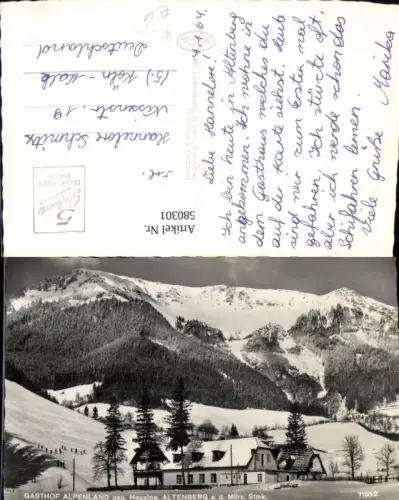 1.4.64.
Liebe Hannelore!
Ich bin heute in Altenberg
angekommen. Ich wohne in
dem Gasthaus welches du
auf der Karte siehst. Heute
sind wir zum ersten mal
gefahren. Ich stürzte oft,
aber ich werde schon das
Schifahren lernen.
Viele Grüße Marika
Hannelore Schmitz
19
(5) Köln - Kalk
Deutschland
5
Artikel Nr.
580301
GASTHOF ALPENLAND bes. Heuslps, ALTENBERG a. d. Mürz, Stmk.